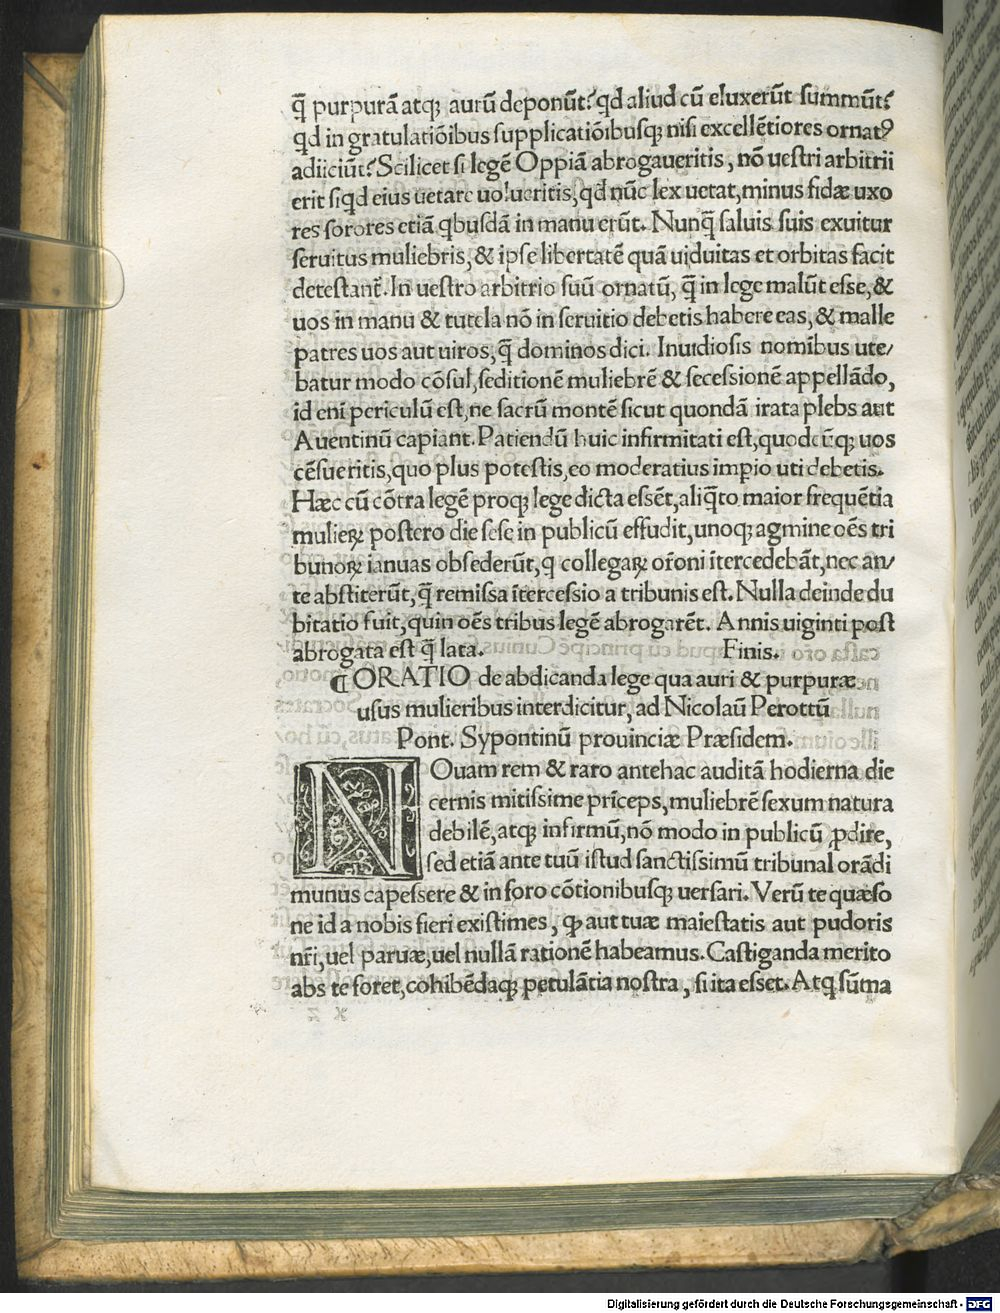 q̄ purpurā atq; aurū deponūt? qd aliud cū eluxerūt summūt?
qd in gratulatiōibus supplicatiōibusq; nisi excellētiores ornat9
adiiciūt? Scilicet si legē Oppiā abrogaueritis, nō uestri arbitrii
erit siqd eius uetare uolueritis, qd nūc lex uetat, minus fidæ uxo
res sorores etiā qbusdā in manu erūt. Nunq̄ saluis suis exuitur
seruitus muliebris, & ipse libertatē quā uiduitas et orbitas facit
detestant̄. In uestro arbitrio suū ornatū, q̄ in lege malūt esse, &
uos in manu & tutela nō in seruitio debetis habere eas, & malle
patres uos aut uiros, q̄ dominos dici. Inuidiosis nomībus ute/
batur modo cōsul, seditionē muliebrē & secessionē appellādo,
id enī periculū est, ne sacrū montē sicut quondā irata plebs aut
Auentinū capiant. Patiendū huic infirmitati est, quodcūq; uos
cēsueritis, quo plus potestis, eo moderatius imp̱io uti debetis.
Hæc cū cōtra legē proq; lege dicta essēt, aliq̄to maior frequētia
mulieꝝ postero die sese in publicū effudit, unoq; agmine oēs tri
bunoꝝ ianuas obsederūt, q collegaꝝ or̄oni ītercedebāt, nec an/
te abstiterūt, q̄ remissa ītercessio a tribunis est. Nulla deinde du
bitatio fuit, quin oēs tribus legē abrogarēt. Annis uiginti post
abrogata est q̄ lata. Finis.
¶ ORATIO de abdicanda lege qua auri & purpuræ
usus mulieribus interdicitur, ad Nicolaū Perottū
Pont. Sypontinū prouinciæ Præsidem.
NOuam rem & raro antehac auditā hodierna die
cernis mitissime prīceps, muliebrē sexum natura
debilē, atq; infirmū, nō modo in publicū ꝓdire,
sed etiā ante tuū istud sanctissimū tribunal orādi
munus capessere & in foro cōtionibusq; uersari. Verū te quæso
ne id a nobis fieri existimes, ꝙ aut tuæ maiestatis aut pudoris
nr̄i, uel paruæ, uel nullā rationē habeamus. Castiganda merito
abs te foret, cohibēdaq; petulātia nostra, si ita esset. Atq sūma
Digitalisierung gefördert durch die Deutsche Forschungsgemeinschaft - DFG